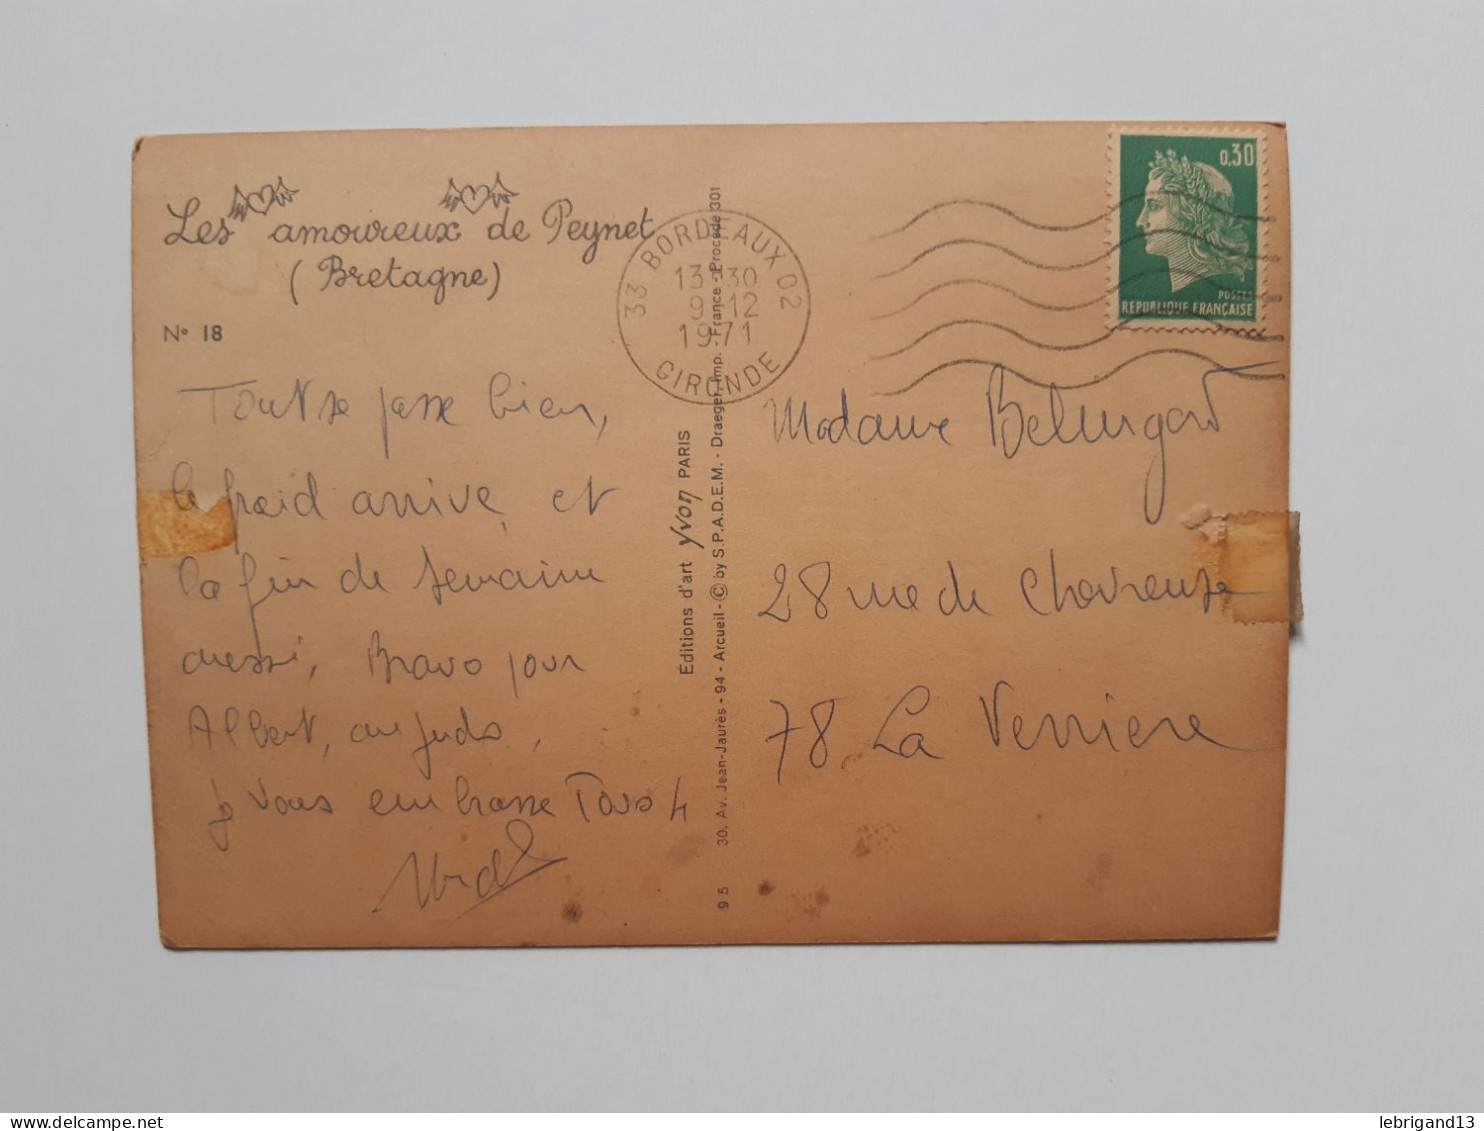 Les amoureux de Peynet
(Bretagne)
N° 18
Tout se passe bien,
le froid arrive, et
la fin de semaine
aussi, Bravo pour
Albert, au judo,
je vous embrasse Tous 4
Madame
28 rue de Chevreuse
78 La Verriere
33 BORDEAUX 02
13-30
9-12
1971
GIRONDE
0,30
POSTES
REPUBLIQUE FRANÇAISE
Éditions d'art yvon PARIS
30, Av. Jean-Jaurès - 94 - Arcueil - © by S.P.A.D.E.M. - Draeger, Imp. - France - Procédé 301
95
lebrigand13